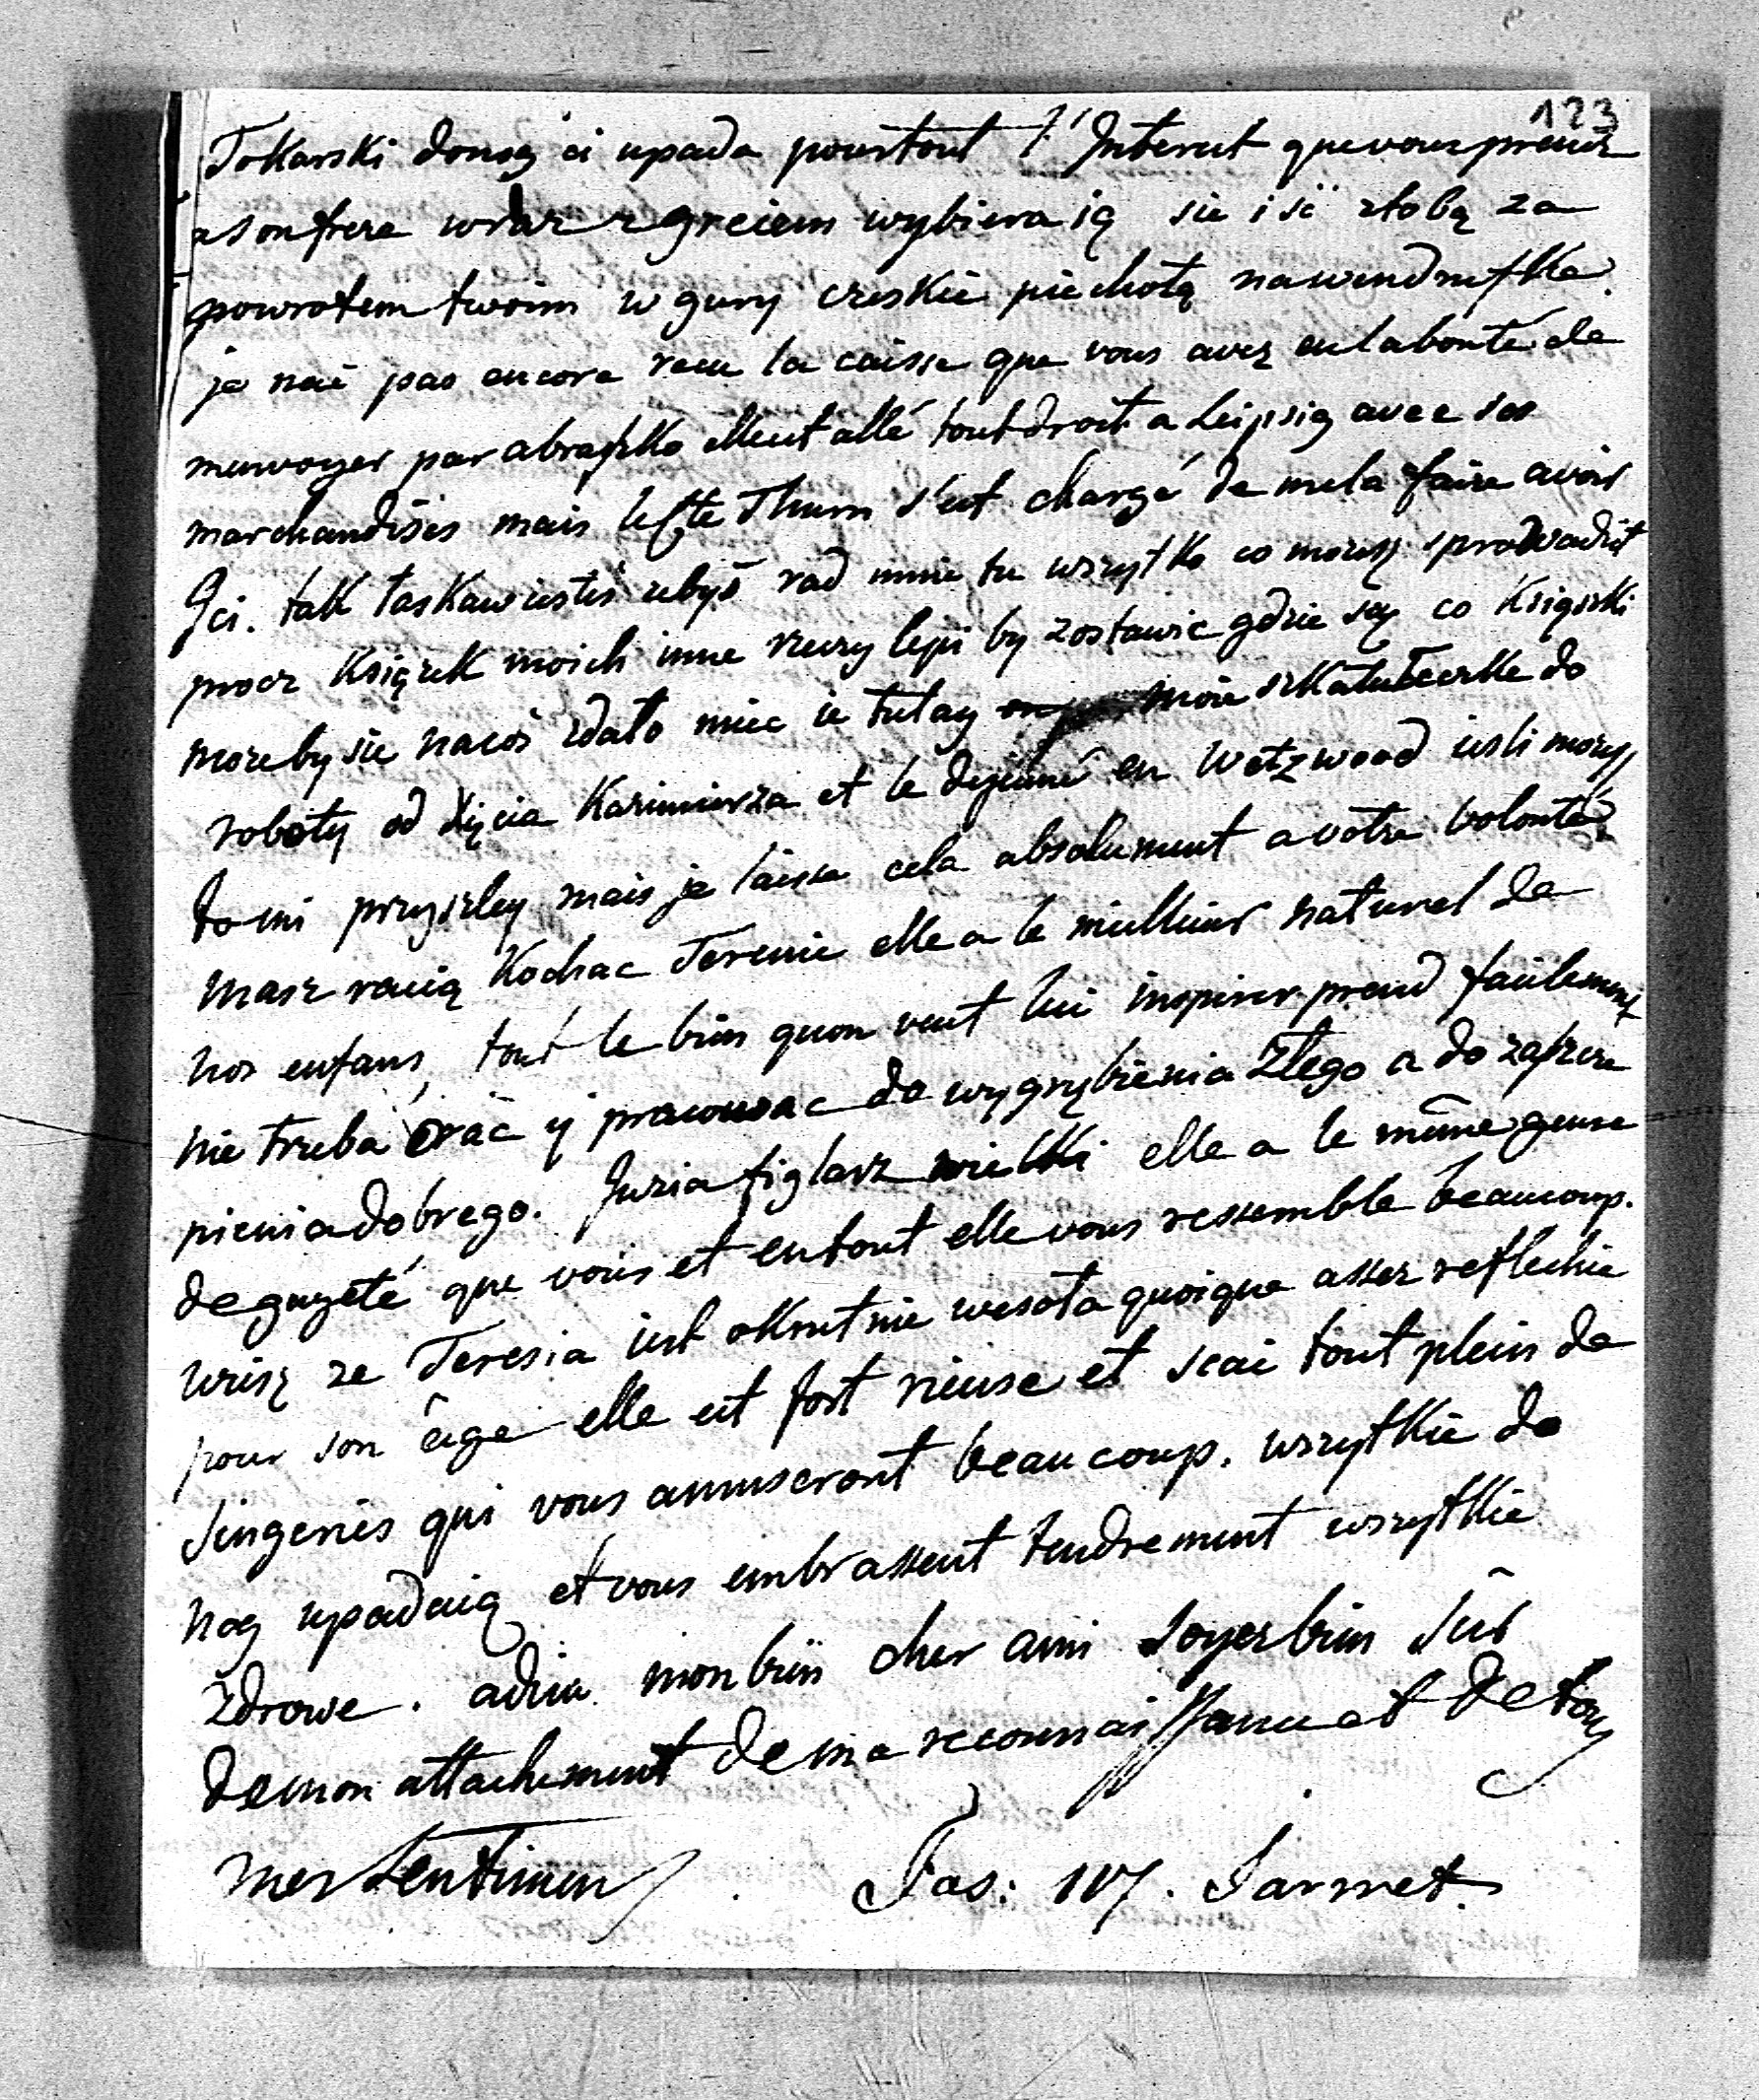 123
Tokarski donog ci upada pourtout l'Interut que vous prenez
a son frere wraz z greciem wybieraią sie isć ztobą za
powrotem twoim w gury czeskie piechotą nawendrufke.
je naè pas encore recu la caisse que vous avez eu labonté de
menvoyer par abraszko elleut allé tout droit a Leipsig avec ses
marchandises mais le Cte Thurn s'ut chargé de mela faire avoir
Jci. tak łaskawiesteś żebyś rad mnie tu wszytko co możesz sprowadził
procz Książek moich inne rzeczy lepi by zostawic gdzie są co Książki
możeby sie nacoś zdało miec ie tutay moie szkatułeczke do
roboty od Xięcia Kazimierza et le dejeuné en Wetzwood iesli mozesz
to mi przyszley mais je laisse cela absolument a votre volonté.
masz racią Kochac Terenie elle a le meilleur naturel de
nos enfans, tout le bien quon veut lui inspirer prend facilement
nie trzeba orać y pracowac do wygrzybienia Złego a do zaszcze
pienia dobrego. Juzia figlarz wielki elle a le même genre
de gayeté que vous et entout elle vous ressemble beaucoup.
wiesz ze Teresia iest okrutnie wesoła quoique assez reflechie
pour son âge elle est fort rieuse et scai tout plein de
Singeries qui vous amuseront beaucoup. wszytkie do
nog upadaią et vous embrassent tendrement wszytkie
Zdrowe. adieu mon bien cher ami Soyez bien Sûr
de mon attachement de ma reconnaissance et de tous
mes Sentimens. Fas: 107. Jarmet.